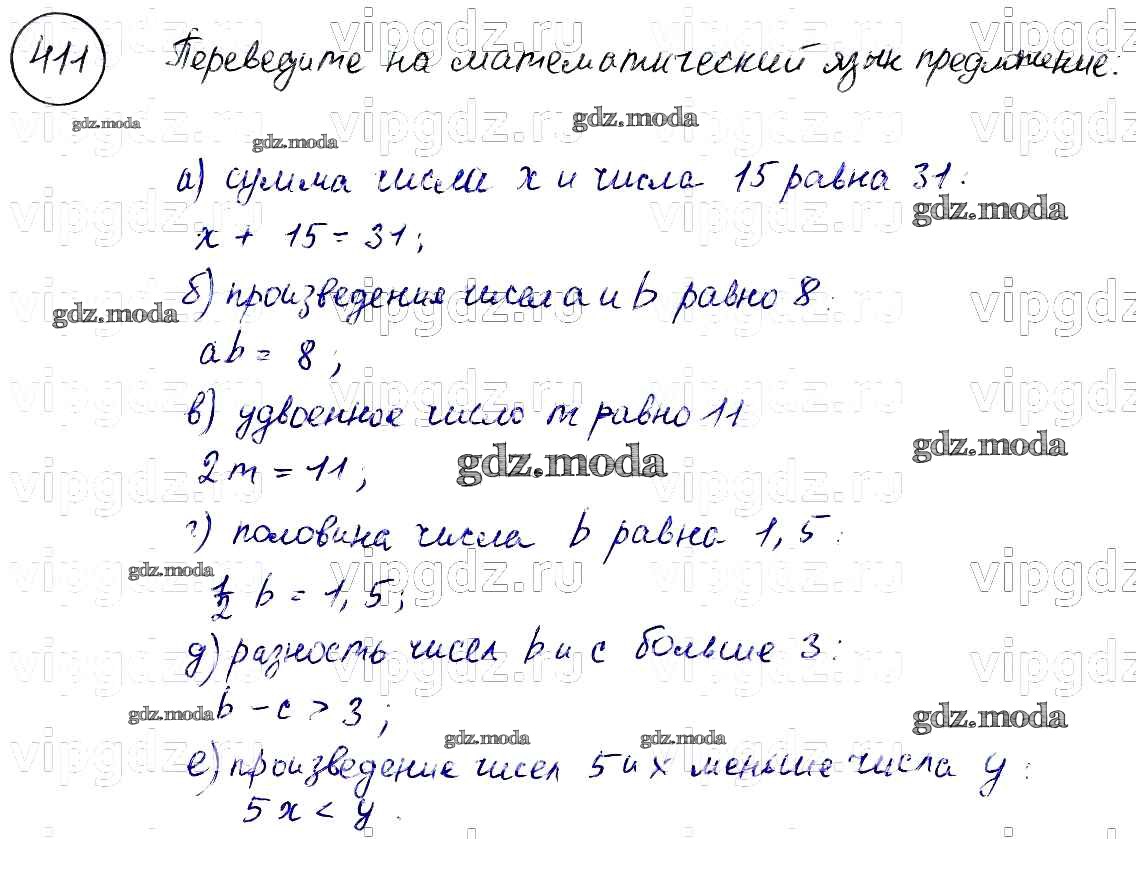 411 Переведите на математический язык предложение:
а) сумма числа x и числа 15 равна 31:
x + 15 = 31;
б) произведения чисел a и b равно 8:
ab = 8;
в) удвоенное число m равно 11
2m = 11;
г) половина числа b равна 1,5:
1/2 b = 1,5;
д) разность чисел b и c больше 3:
b - c > 3;
е) произведение чисел 5 и x меньше числа y:
5x < y.
vipgdz.ru
gdz.moda